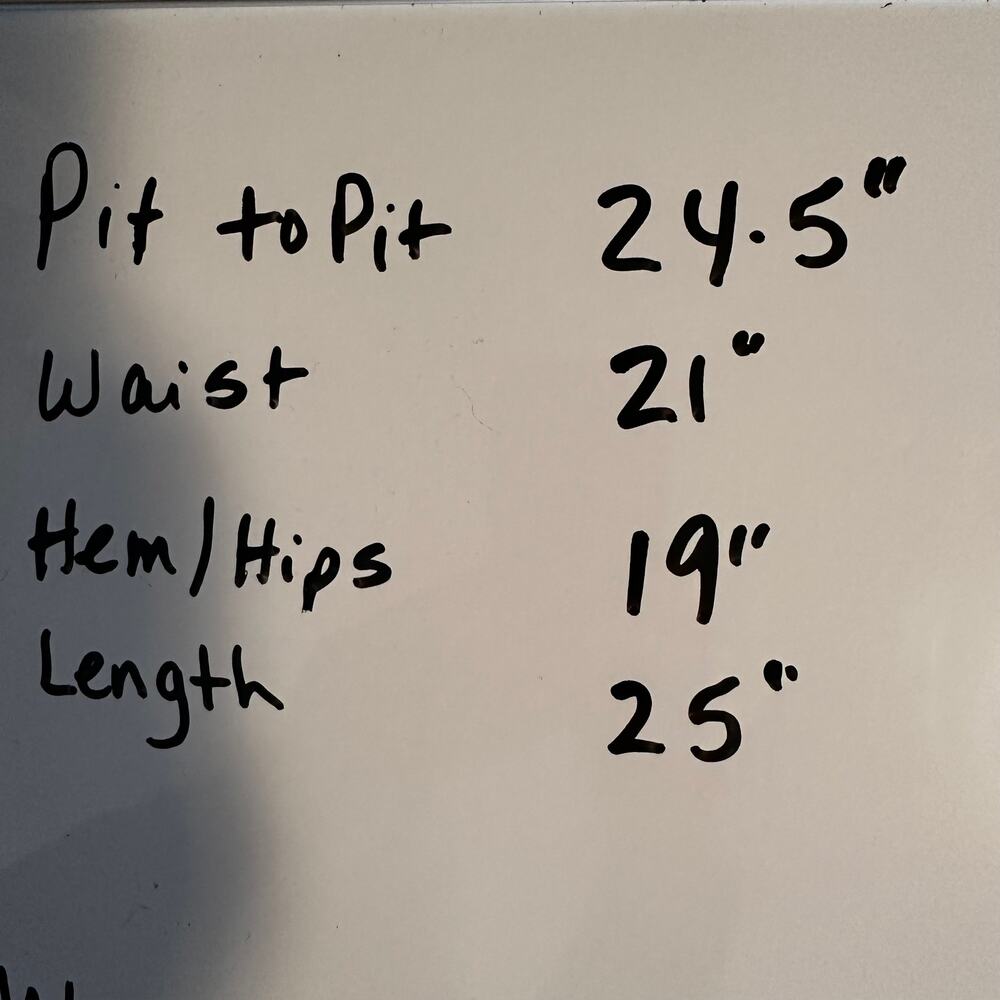 Pit to Pit 24.5"
Waist 21"
Hem/Hips 19"
Length 25"